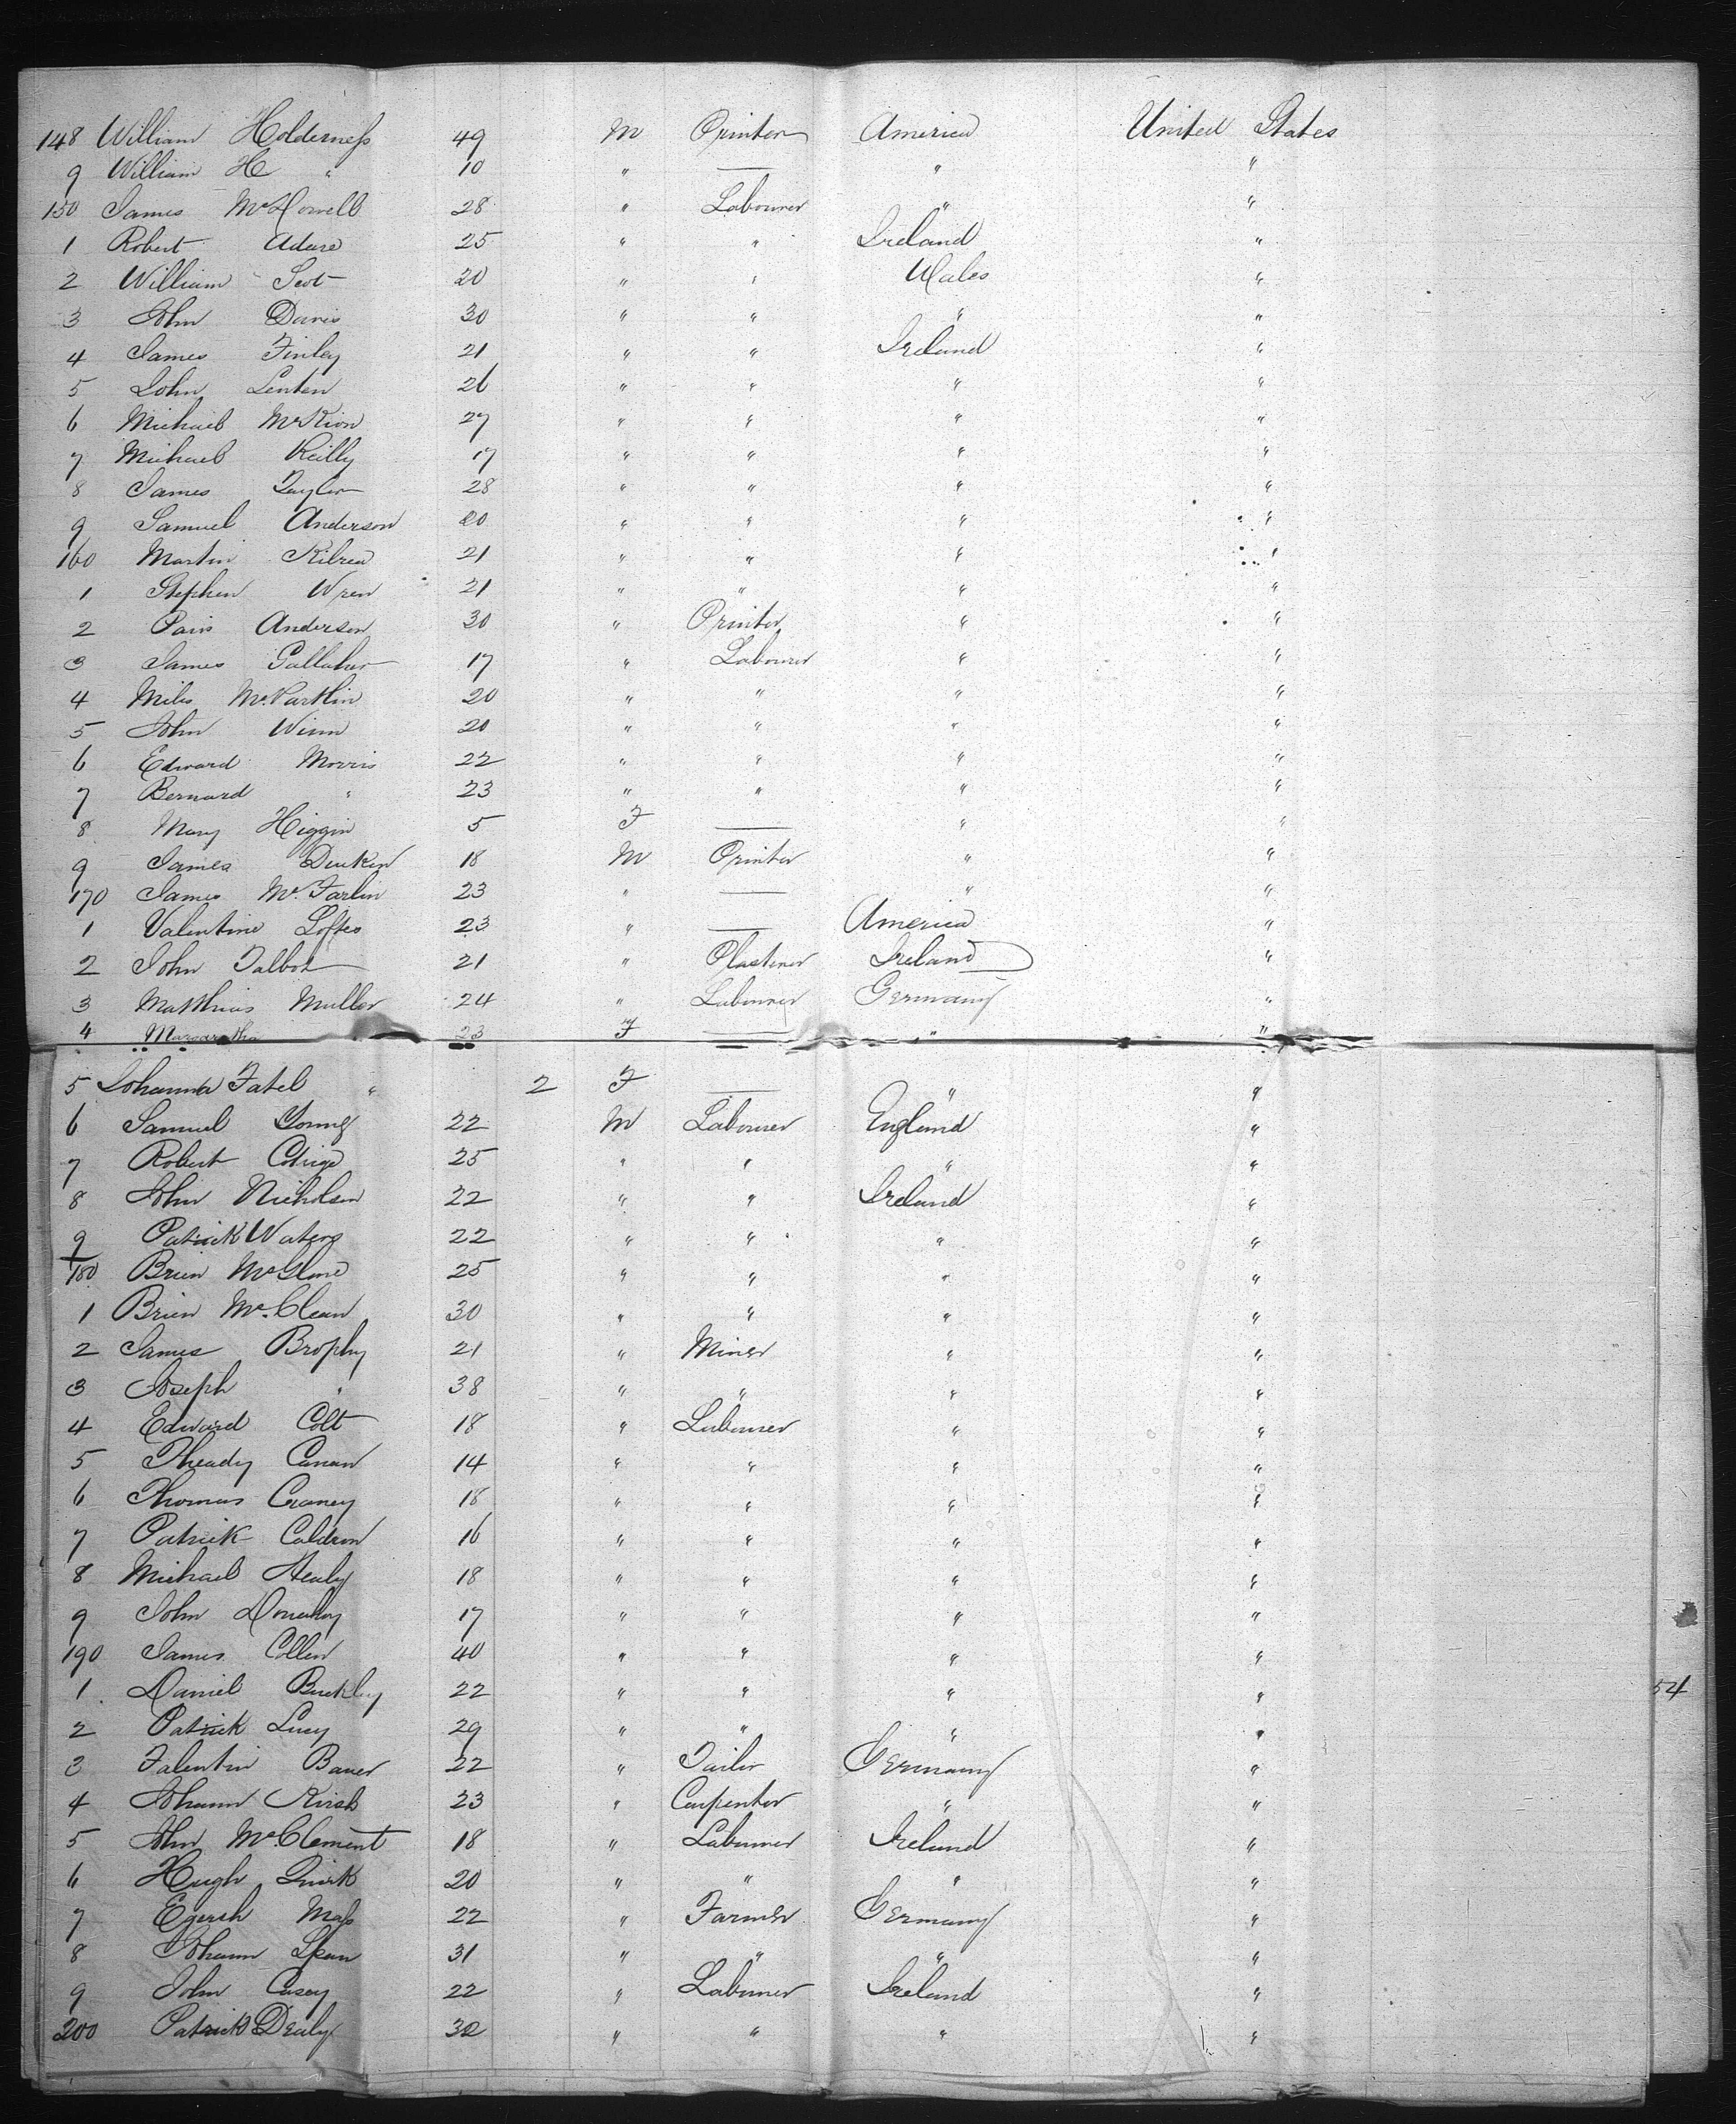 148 William Holderness 49 M Printer America United States
9 William H " 10 " — " "
150 James McHowell 28 " Labourer " "
1 Robert Adare 25 " " Ireland "
2 William Scot 20 " " Wales "
3 John Davis 30 " " " "
4 James Finley 21 " " Ireland "
5 John Lenten 26 " " " "
6 Michael McKion 27 " " " "
7 Michael Reilly 17 " " " "
8 James Taylor 28 " " " "
9 Samuel Anderson 20 " " " "
160 Martin Kilrea 21 " " " "
1 Stephen Wren 21 " " " "
2 Paris Anderson 30 " Printer " "
3 James Gallaher 17 " Labourer " "
4 Miles McPartlin 20 " " " "
5 John Winn 20 " " " "
6 Edward Morris 22 " " " "
7 Bernard " 23 " " " "
8 Mary Higgin 5 F — " "
9 James Durken 18 M Printer " "
170 James McFarlin 23 " — " "
1 Valentine Loftes 23 " — America "
2 John Talbot 21 " Plasterer Ireland "
3 Matthias Muller 24 " Labourer Germany "
4 Margaretha 23 F — " "
5 Johanna Fatel " 2 F — " "
6 Samuel Young 22 M Labourer England "
7 Robert 25 " " " "
8 John Nicholson 22 " " Ireland "
9 Patrick Waters 22 " " " "
180 Brien McGlone 25 " " " "
1 Brien McClean 30 " " " "
2 James Brophy 21 " Miner " "
3 Joseph " 38 " " " "
4 Edward Colt 18 " Labourer " "
5 Theady Canan 14 " " " "
6 Thomas Craney 18 " " " "
7 Patrick Caldron 16 " " " "
8 Michael Healy 18 " " " "
9 John Donahoy 17 " " " "
190 James Collen 40 " " " "
1 Daniel Buckley 22 " " " "
2 Patrick Lucy 29 " " " "
3 Falentin Bauer 22 " Tailor Germany "
54
4 Johann Kirsh 23 " Carpenter " "
5 John McClement 18 " Labourer Ireland "
6 Hugh Quirk 20 " " " "
7 Mass 22 " Farmer Germany "
8 Johann Span 31 " " " "
9 John Casey 22 " Labourer Ireland "
200 Patrick Dealy 30 " " " "